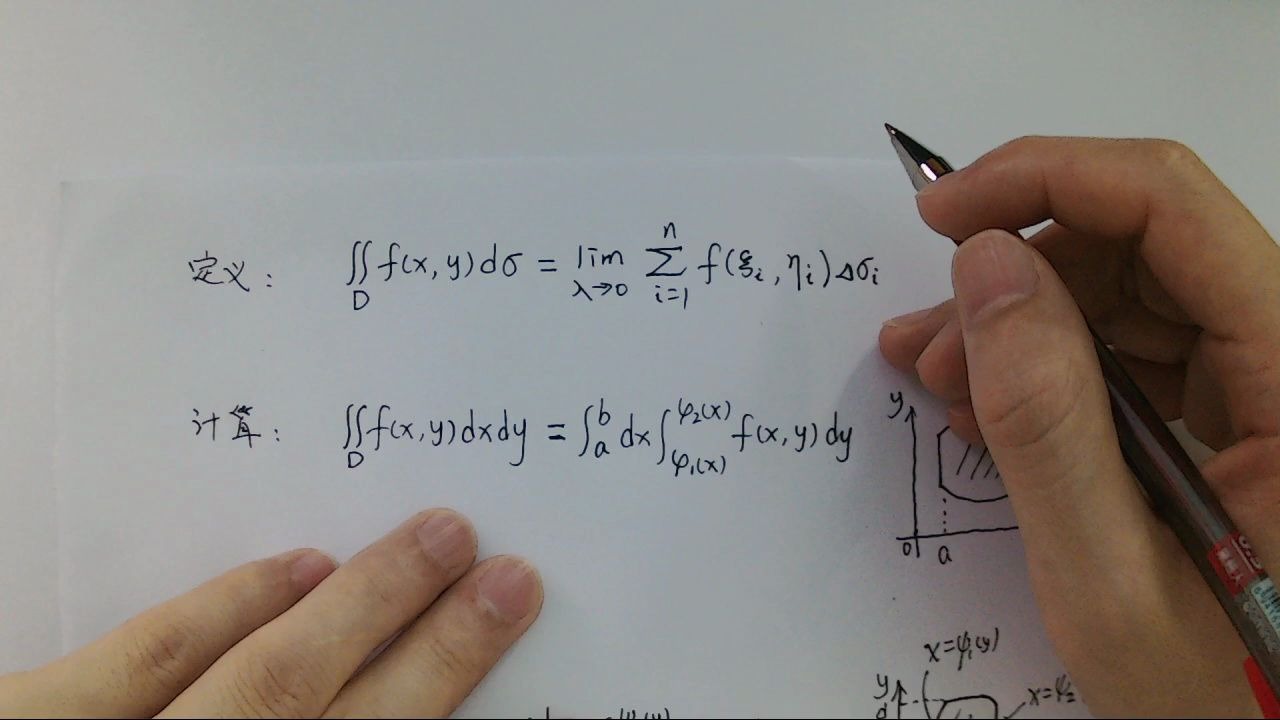 定义： ∬_D f(x,y)dσ = lim_{λ→0} ∑_{i=1}^{n} f(ξ_i,η_i)Δσ_i
计算： ∬_D f(x,y)dxdy = ∫_a^b dx∫_{φ₁(x)}^{φ₂(x)} f(x,y)dy
y
0 a
x=ψ₁(y)
y
d
x=ψ₂